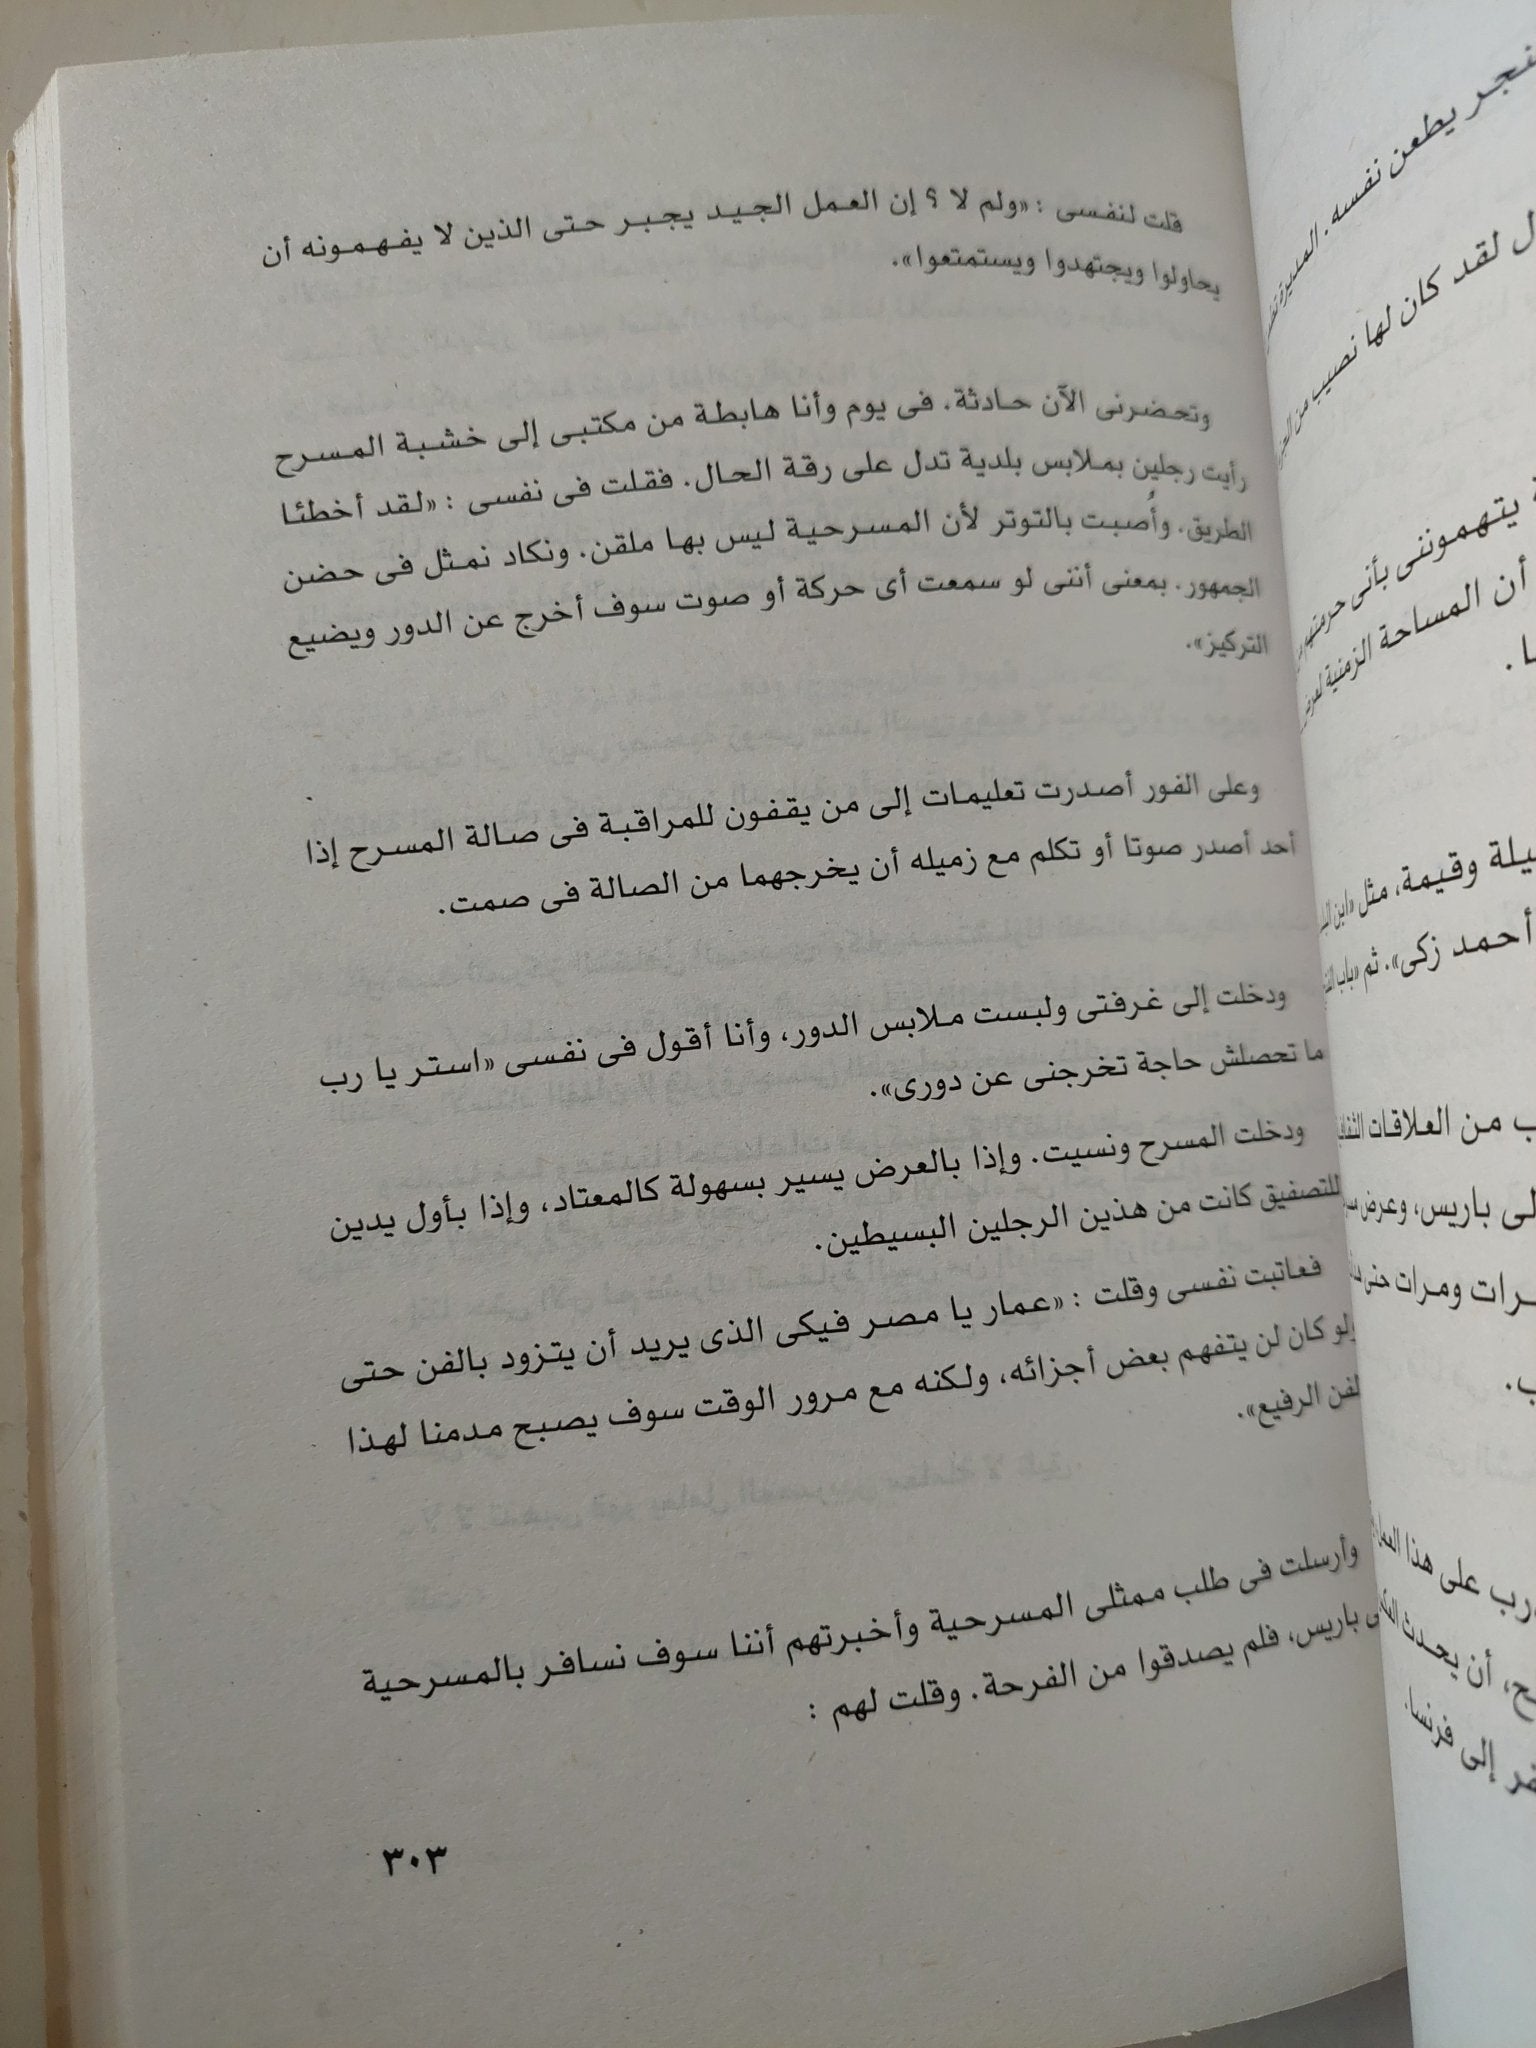 قلت لنفسى : «ولم لا ؟ إن العمل الجيد يجبر حتى الذين لا يفهمونه أن
يحاولوا ويجتهدوا ويستمتعوا».
وتحضرنى الآن حادثة. فى يوم وأنا هابطة من مكتبى إلى خشبة المسرح
رأيت رجلين بملابس بلدية تدل على رقة الحال. فقلت فى نفسى : «لقد أخطئا
الطريق. وأُصبت بالتوتر لأن المسرحية ليس بها ملقن. ونكاد نمثل فى حضن
الجمهور. بمعنى أننى لو سمعت أى حركة أو صوت سوف أخرج عن الدور ويضيع
التركيز».
وعلى الفور أصدرت تعليمات إلى من يقفون للمراقبة فى صالة المسرح إذا
أحد أصدر صوتا أو تكلم مع زميله أن يخرجهما من الصالة فى صمت.
ودخلت إلى غرفتى ولبست ملابس الدور، وأنا أقول فى نفسى «استر يا رب
ما تحصلش حاجة تخرجنى عن دورى».
ودخلت المسرح ونسيت. وإذا بالعرض يسير بسهولة كالمعتاد، وإذا بأول يدين
للتصفيق كانت من هذين الرجلين البسيطين.
فعاتبت نفسى وقلت : «عمار يا مصر فيكى الذى يريد أن يتزود بالفن حتى
ولو كان لن يتفهم بعض أجزائه، ولكنه مع مرور الوقت سوف يصبح مدمنا لهذا
لفن الرفيع».
وأرسلت فى طلب ممثلى المسرحية وأخبرتهم أننا سوف نسافر بالمسرحية
باريس، فلم يصدقوا من الفرحة. وقلت لهم :
٣٠٣
يطعن نفسه. المديرة
لقد كان لها نصيب من
يتهموننى بأنى حرمتهم
أن المساحة الزمنية
وقيمة، مثل «ابن
أحمد زكى». ثم «باب
من العلاقات
باريس، وعرض
ومرات حتى
على هذا
أن يحدث
إلى فرنسا.